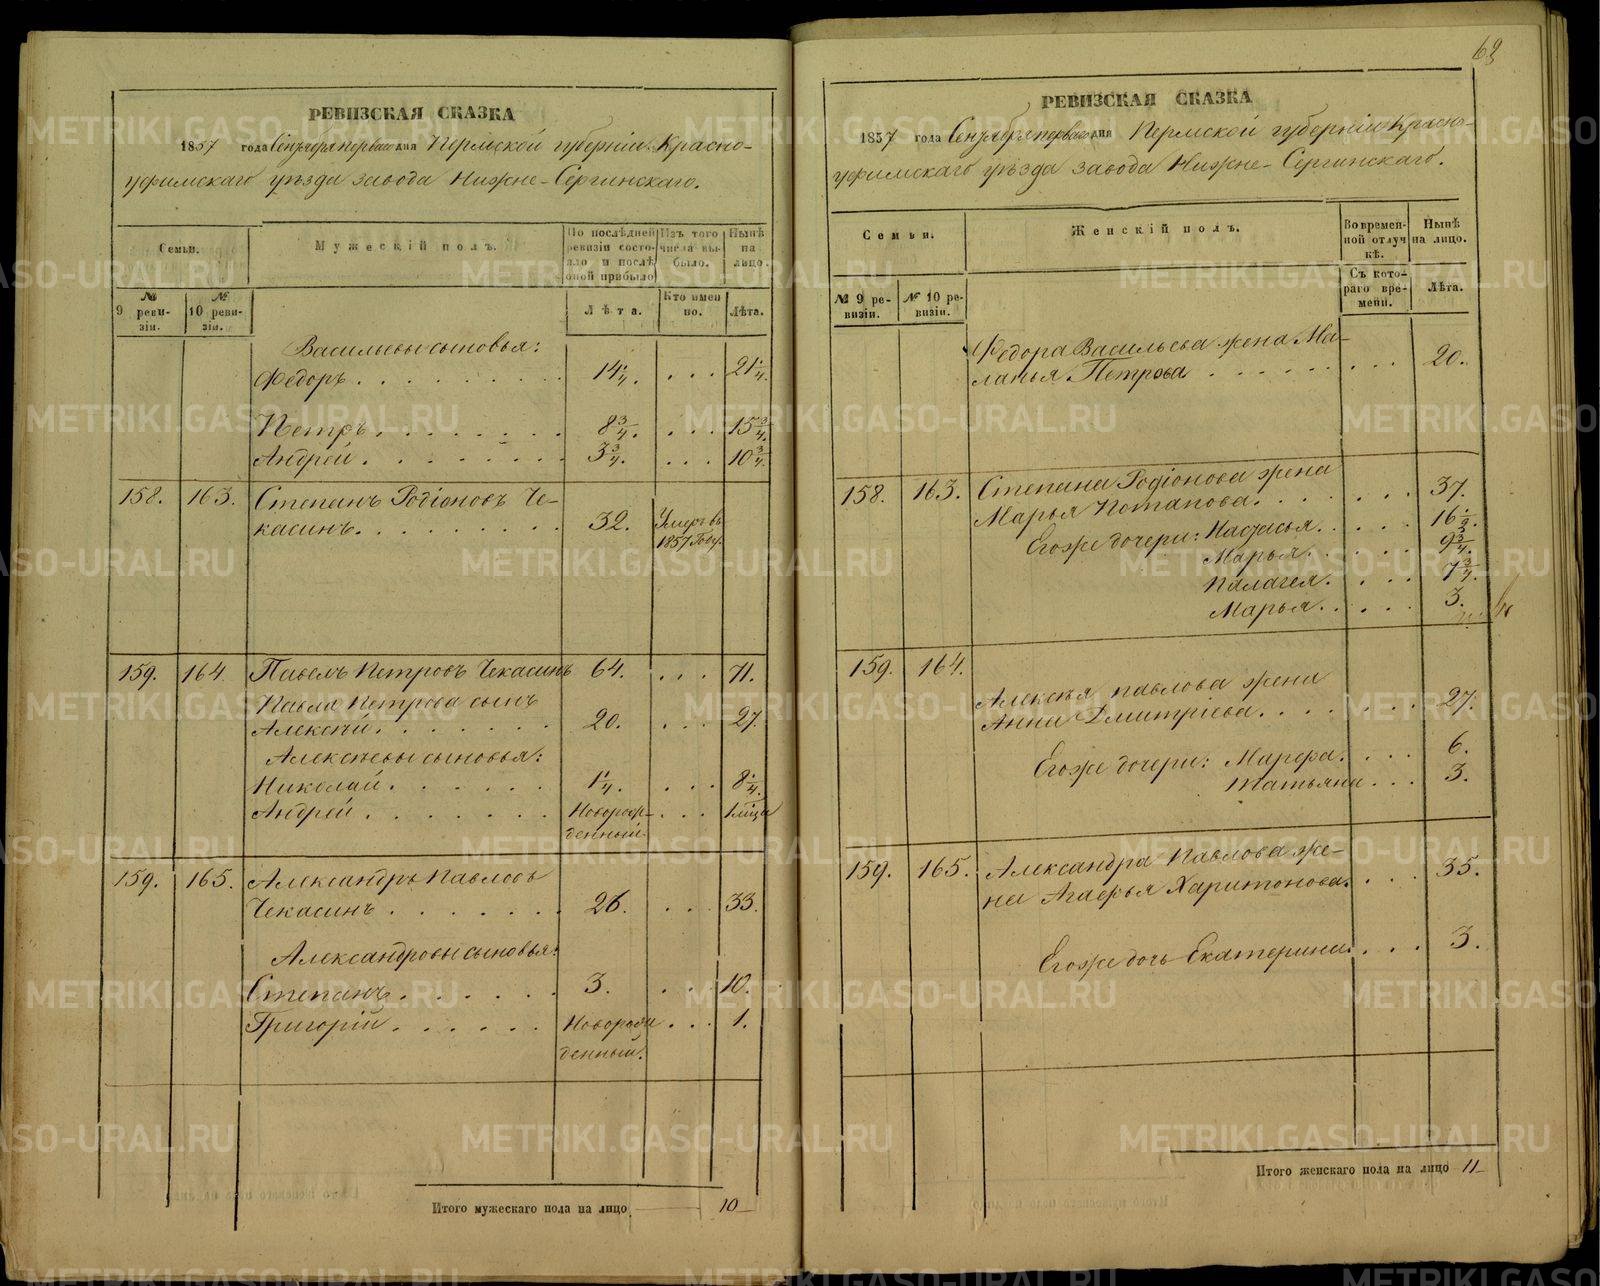 РЕВИЗСКАЯ СКАЗКА
1857 года Сентября перваго дня Пермской губернiи Красно-
уфимскаго уѣзда завода Нижне-Сергинскаго.
Семьи.
Мужескiй полъ.
По послѣдней ревизiи состояло и послѣ оной прибыло
Изъ того числа выбыло.
Нынѣ на лицо.
№ 9 ревизiи.
№ 10 ревизiи.
Лѣта.
Кто именно.
Лѣта.
Васильевы сыновья:
Федоръ . . . . . . . . 14 1/4. . . . 21 1/4.
Петръ . . . . . . . 8 3/4. . . . 15 3/4.
Андрей . . . . . . . 3 3/4. . . . 10 3/4.
158. 163. Степанъ Родiоновъ Че-
касинъ . . . . . . . 32. Умеръ въ
1857 году.
159. 164. Павелъ Петровъ Чекасинъ 64. . . . 71.
Павла Петрова сынъ
Алексѣй . . . . . . . 20. . . . 27.
Алексѣевы сыновья:
Николай . . . . . . 1 1/4. . . . 8 1/4.
Андрей . . . . . . . Новорож- . . .
денный.
159. 165. Александръ Павловъ
Чекасинъ . . . . . . . 26. . . . 33.
Александровы сыновья:
Степанъ . . . . . . 3. . . . 10.
Григорiй . . . . . . Новорож . . . 1.
денный.
Итого мужескаго пола на лицо 10
РЕВИЗСКАЯ СКАЗКА
1857 года Сентября перваго дня Пермской губернiи Красно-
уфимскаго уѣзда завода Нижне-Сергинскаго.
Семьи.
Женскiй полъ.
Во временной отлучкѣ.
Нынѣ на лицо.
№ 9 ревизiи.
№ 10 ревизiи.
Съ котораго времени.
Лѣта.
Федора Васильева жена Ма-
ланья Петрова . . . . . . . . 20.
158. 163. Степана Родiонова жена
Марья Потапова . . . . . . . 37.
Егоже дочери: Настасья . . . . . 16 1/2.
Марья . . . . . 9 3/4.
Палагея . . . . . 7 3/4.
Марья . . . . . 3.
159. 164.
Алексѣя Павлова жена
Анна Дмитрiева . . . . . . . 27.
Егоже дочери: Марфа . . . . 6.
Татьяна . . . 3.
159. 165. Александра Павлова же-
на Агафья Харитонова . . . . 35.
Егоже дочь Екатерина . . . . 3.
Итого женскаго пола на лицо 11
METRIKI.GASO-URAL.RU